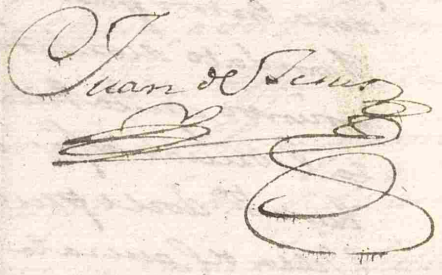 Juan de Jesus